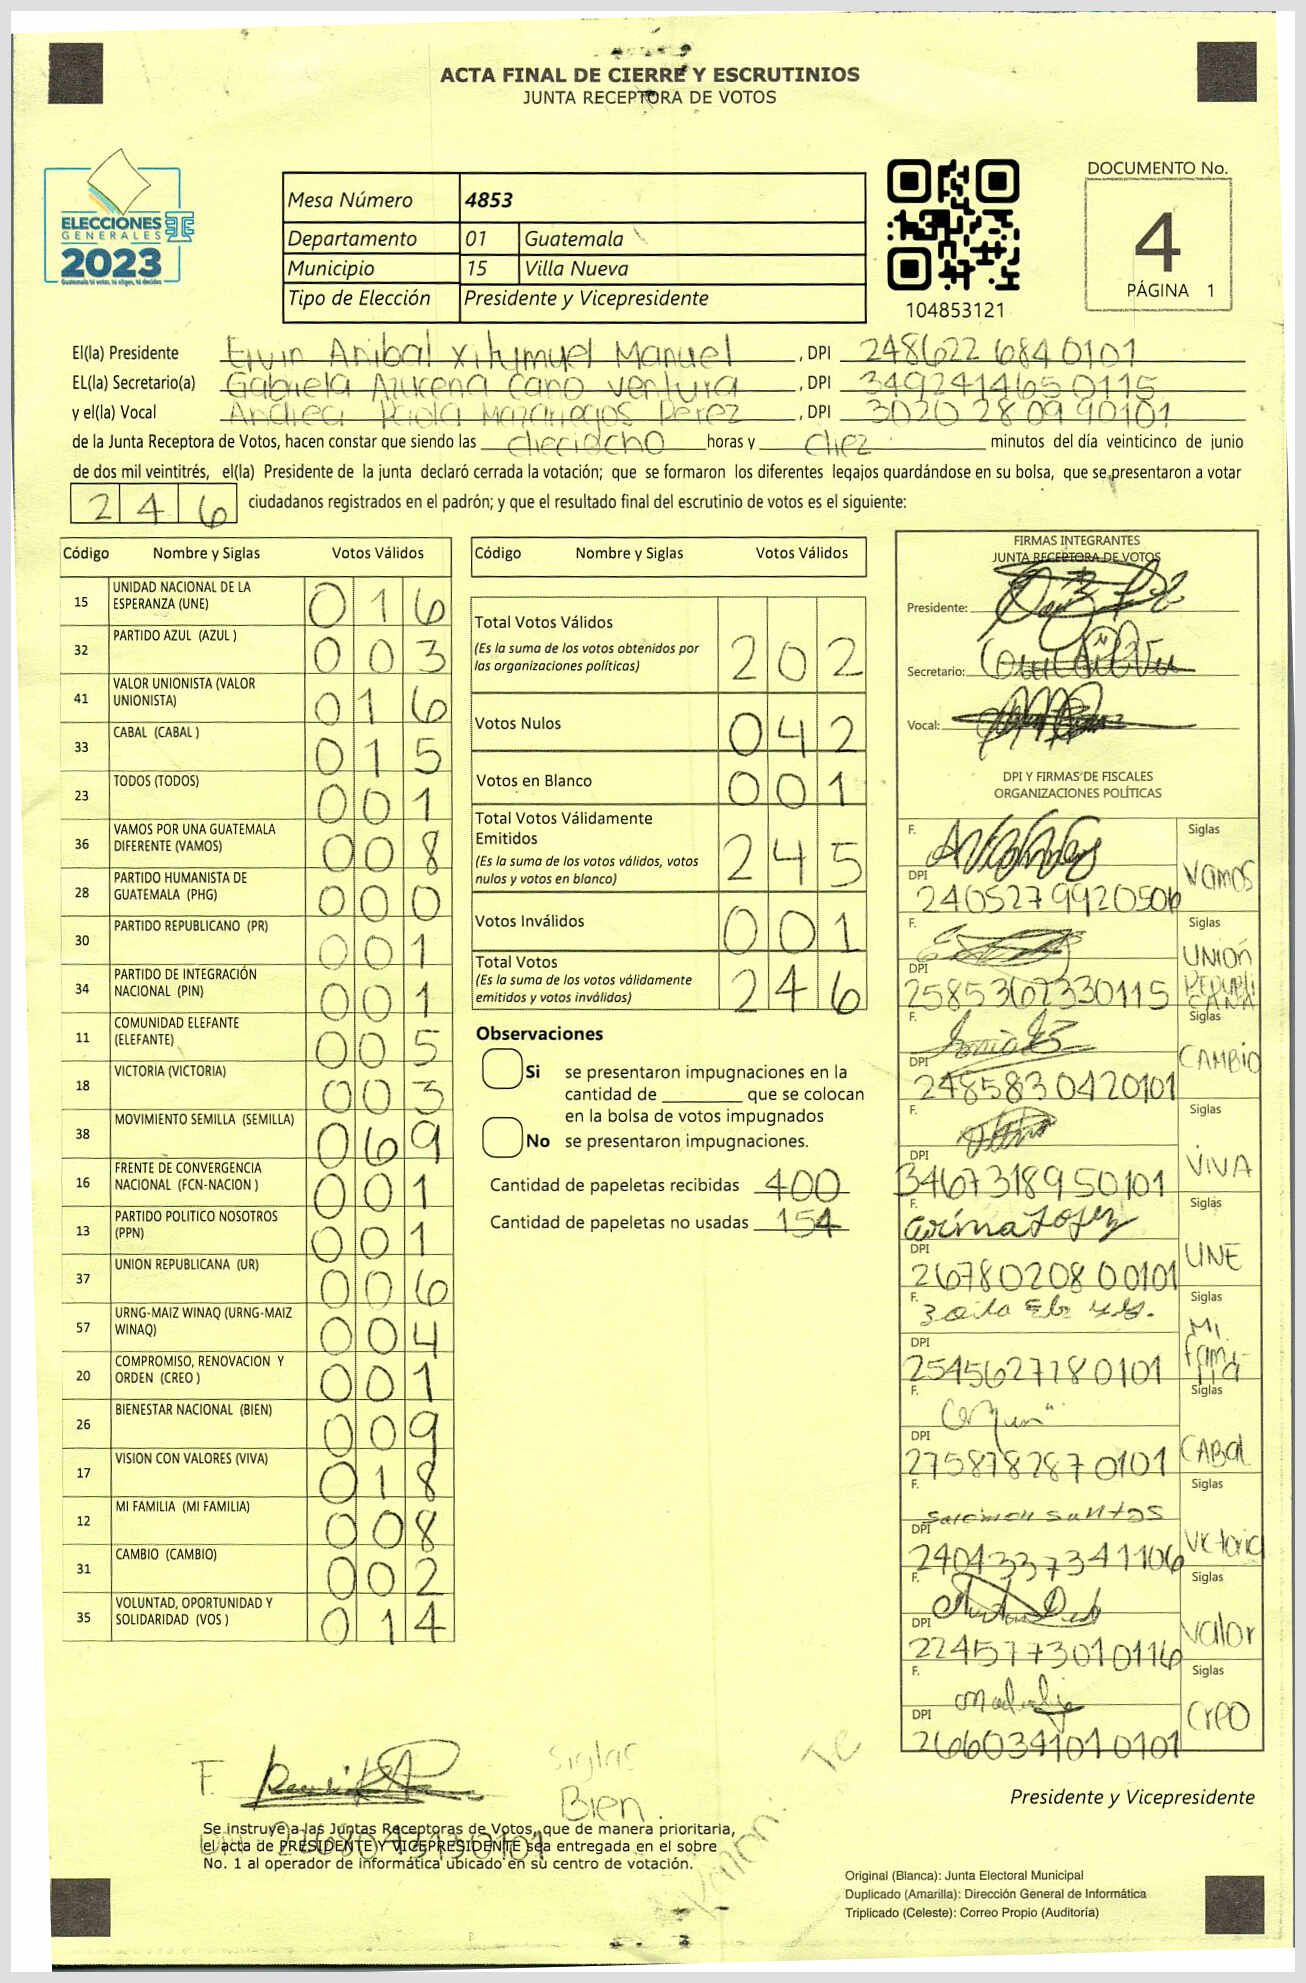 ACTA FINAL DE CIERRE Y ESCRUTINIOS
JUNTA RECEPTORA DE VOTOS
ELECCIONES
GENERALES
2023
Guatemala tú votas, tú eliges, tú decides
Mesa Número 4853
Departamento 01 Guatemala
Municipio 15 Villa Nueva
Tipo de Elección Presidente y Vicepresidente
104853121
DOCUMENTO No.
4
PÁGINA 1
El(la) Presidente Ervin Anibal Manuel, DPI 248622 684 0101
EL(la) Secretario(a) Gabriela Azucena Cano Ventura, DPI 349241465 0115
y el(la) Vocal Andrea Paola Mazariegos Perez, DPI 3020 2809 90101
de la Junta Receptora de Votos, hacen constar que siendo las dieciocho horas y diez minutos del día veinticinco de junio
de dos mil veintitrés, el(la) Presidente de la junta declaró cerrada la votación; que se formaron los diferentes legajos guardándose en su bolsa, que se presentaron a votar
246 ciudadanos registrados en el padrón; y que el resultado final del escrutinio de votos es el siguiente:
Código Nombre y Siglas Votos Válidos
15 UNIDAD NACIONAL DE LA ESPERANZA (UNE) 016
32 PARTIDO AZUL (AZUL ) 003
41 VALOR UNIONISTA (VALOR UNIONISTA) 016
33 CABAL (CABAL ) 015
23 TODOS (TODOS) 001
36 VAMOS POR UNA GUATEMALA DIFERENTE (VAMOS) 008
28 PARTIDO HUMANISTA DE GUATEMALA (PHG) 000
30 PARTIDO REPUBLICANO (PR) 001
34 PARTIDO DE INTEGRACIÓN NACIONAL (PIN) 001
11 COMUNIDAD ELEFANTE (ELEFANTE) 005
18 VICTORIA (VICTORIA) 003
38 MOVIMIENTO SEMILLA (SEMILLA) 069
16 FRENTE DE CONVERGENCIA NACIONAL (FCN-NACION ) 001
13 PARTIDO POLITICO NOSOTROS (PPN) 001
37 UNION REPUBLICANA (UR) 006
57 URNG-MAIZ WINAQ (URNG-MAIZ WINAQ) 004
20 COMPROMISO, RENOVACION Y ORDEN (CREO ) 001
26 BIENESTAR NACIONAL (BIEN) 009
17 VISION CON VALORES (VIVA) 018
12 MI FAMILIA (MI FAMILIA) 008
31 CAMBIO (CAMBIO) 002
35 VOLUNTAD, OPORTUNIDAD Y SOLIDARIDAD (VOS ) 014
Código Nombre y Siglas Votos Válidos
Total Votos Válidos 202
(Es la suma de los votos obtenidos por
las organizaciones políticas)
Votos Nulos 042
Votos en Blanco 001
Total Votos Válidamente
Emitidos 245
(Es la suma de los votos válidos, votos
nulos y votos en blanco)
Votos Inválidos 001
Total Votos 246
(Es la suma de los votos válidamente
emitidos y votos inválidos)
Observaciones
Si se presentaron impugnaciones en la
cantidad de ________ que se colocan
en la bolsa de votos impugnados
No se presentaron impugnaciones.
Cantidad de papeletas recibidas 400
Cantidad de papeletas no usadas 154
FIRMAS INTEGRANTES
JUNTA RECEPTORA DE VOTOS
Presidente:
Secretario:
Vocal:
DPI Y FIRMAS DE FISCALES
ORGANIZACIONES POLÍTICAS
F. Siglas
DPI Vamos
2405279920506
F. Siglas
DPI UNIÓN REPUBLICANA
2585362330115
F. Siglas
DPI CAMBIO
2485830420101
F. Siglas
DPI VIVA
3467318950101
F. Siglas
Karina Lopez
DPI UNE
2678020800101
F. Siglas
DPI Mi familia
2545627180101
F. Siglas
DPI CABAL
2758782870101
F. Siglas
Salomon Santos
DPI Victoria
2404337341106
F. Siglas
DPI Valor
2245773010116
F. Siglas
DPI Creo
2666034101 0101
F.
Siglas
Bien.
Se instruye a las Juntas Receptoras de Votos, que de manera prioritaria,
el acta de PRESIDENTE Y VICEPRESIDENTE sea entregada en el sobre
No. 1 al operador de informática ubicado en su centro de votación.
Presidente y Vicepresidente
Original (Blanca): Junta Electoral Municipal
Duplicado (Amarilla): Dirección General de Informática
Triplicado (Celeste): Correo Propio (Auditoría)